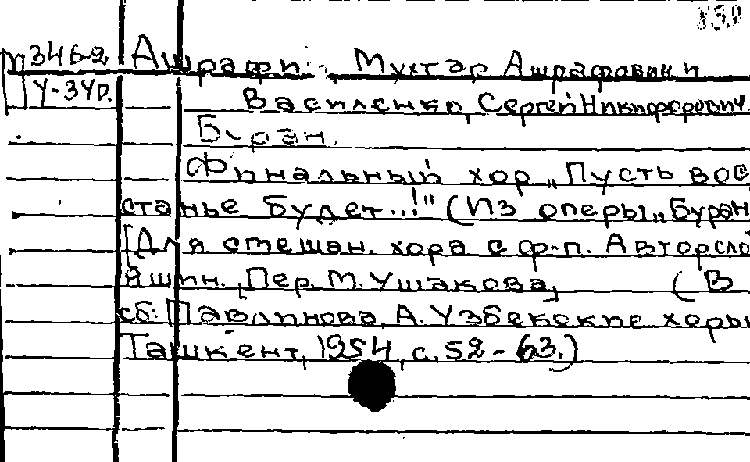 Ашрафи, Мухтар Ашрафович и
П 346-2
У-34р.
Василенко, Сергей Никифорович.
Буран.
Финальный хор „Пусть вос
станье будет...!" (Из оперы „Буран
[Для смешан. хора с ф-п. Авторсло
Яшин. [Пер. М. Ушакова] (В
сб: Павлинова, А. Узбекские хоры
Ташкент, 1954, с. 52-63.)